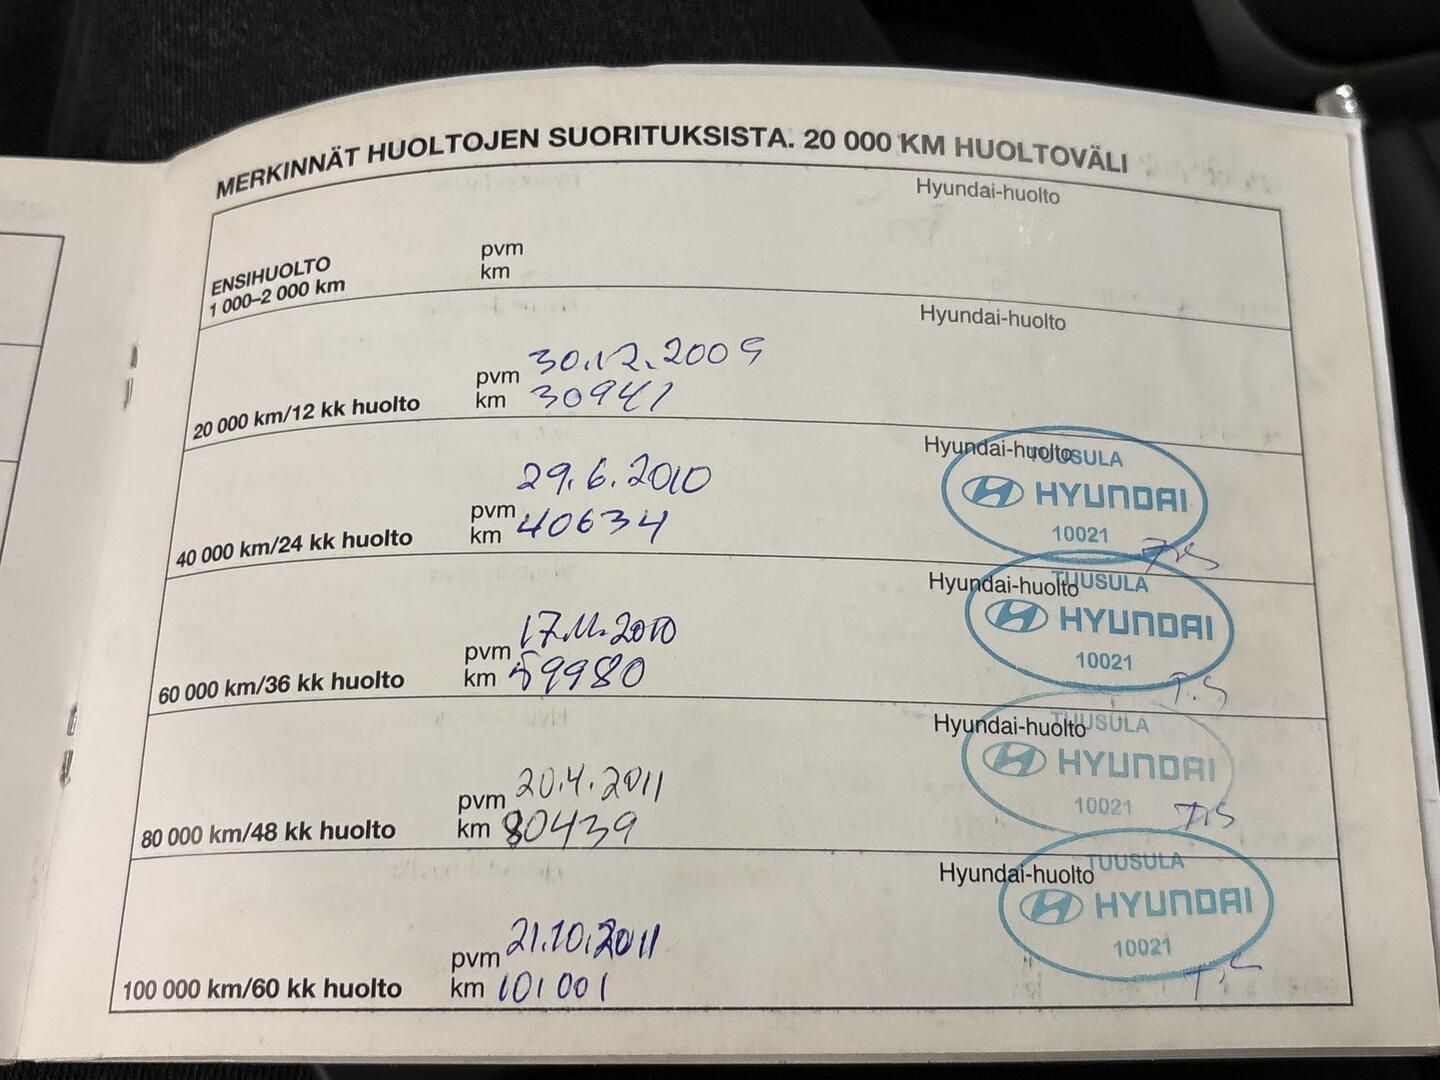 MERKINNÄT HUOLTOJEN SUORITUKSISTA. 20 000 KM HUOLTOVÄLI
Hyundai-huolto
ENSIHUOLTO
1 000–2 000 km
pvm
km
Hyundai-huolto
20 000 km/12 kk huolto
pvm 30.12.2009
km 30941
Hyundai-huolto
TUUSULA
HYUNDAI
10021
T.S
40 000 km/24 kk huolto
pvm 29.6.2010
km 40634
Hyundai-huolto
TUUSULA
HYUNDAI
10021
T.S
60 000 km/36 kk huolto
pvm 17.11.2010
km 59980
Hyundai-huolto
TUUSULA
HYUNDAI
10021
T.S
80 000 km/48 kk huolto
pvm 20.4.2011
km 80439
Hyundai-huolto
TUUSULA
HYUNDAI
10021
T.S
100 000 km/60 kk huolto
pvm 21.10.2011
km 101001